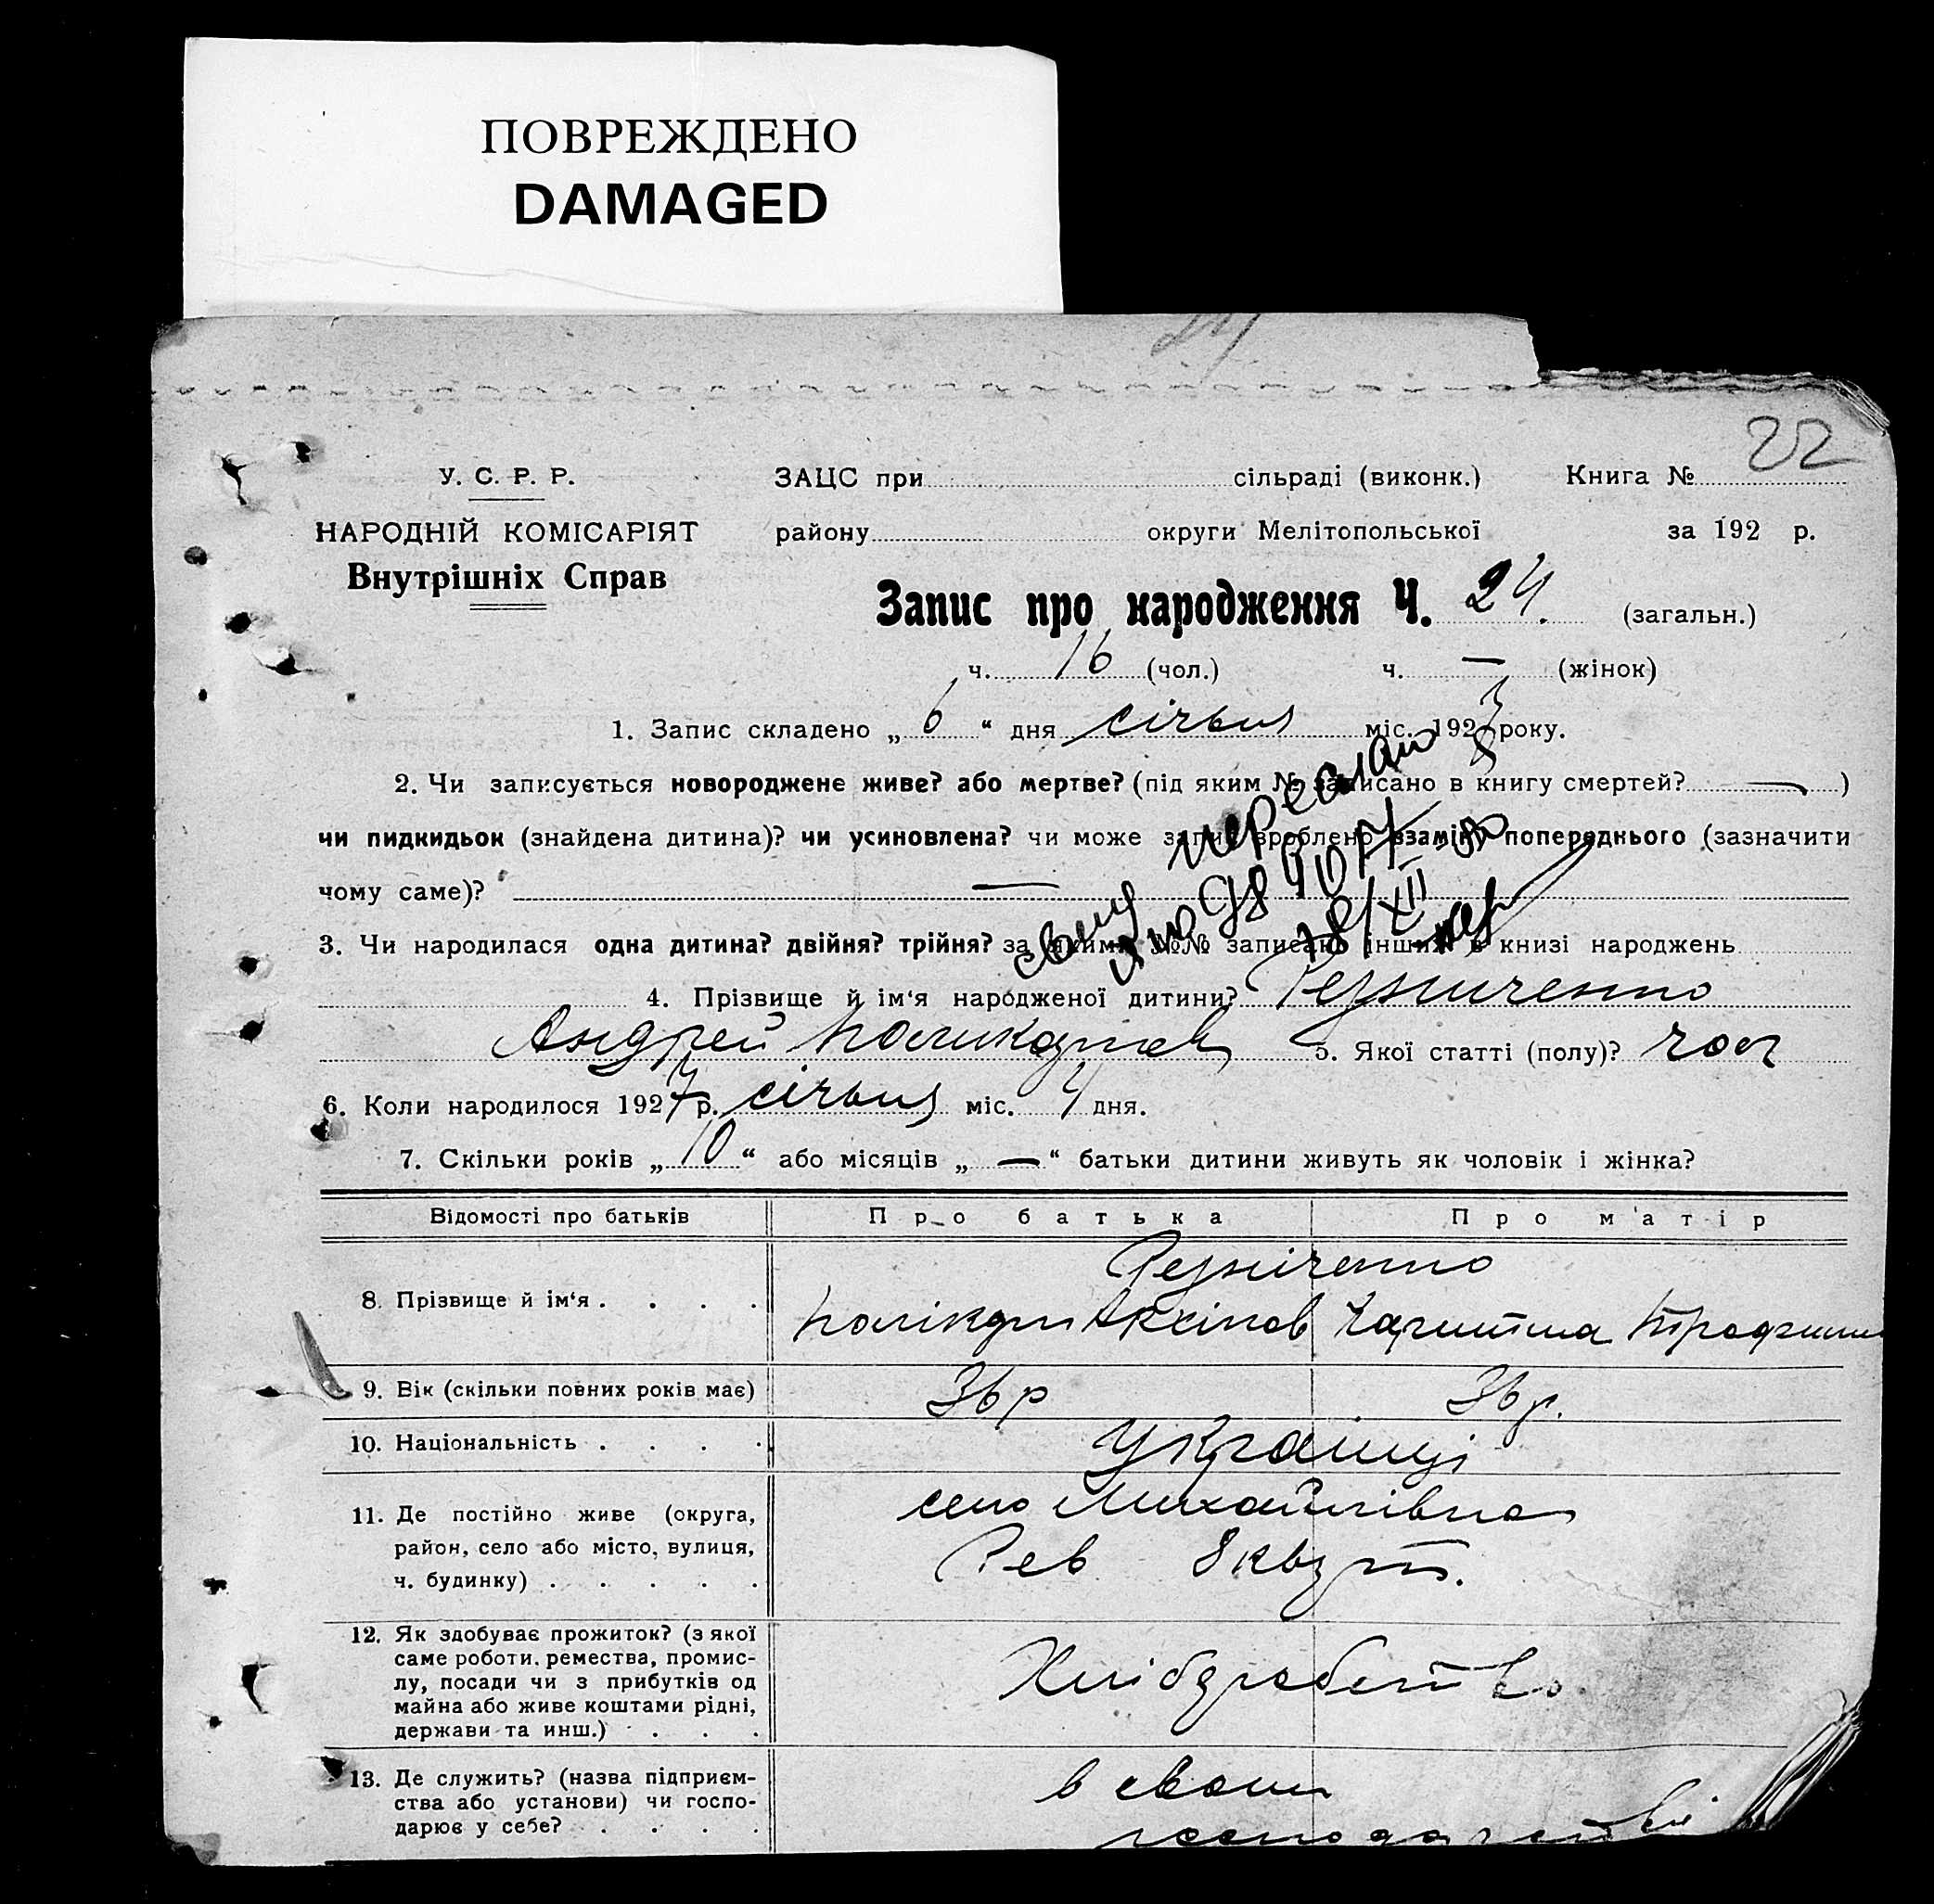 ПОВРЕЖДЕНО
DAMAGED
22
У. С. Р. Р.
ЗАЦС при сільраді (виконк.) Книга №
НАРОДНІЙ КОМІСАРІЯТ
району округи Мелітопольської за 192 р.
Внутрішніх Справ
Запис про народження Ч. 24. (загальн.)
ч. 16 (чол.) ч. — (жінок)
1. Запис складено „ 6 “ дня січьня міс. 1927 року.
2. Чи записується новороджене живе? або мертве? (під яким № записано в книгу смертей? — )
чи пидкидьок (знайдена дитина)? чи усиновлена? чи може запис зроблено взамін попереднього (зазначити
чому саме)? —
3. Чи народилася одна дитина? двійня? трійня? за якими №№ записано інших в книзі народжень
4. Прізвище й ім‘я народженої дитини? Резниченко
Андрей Поликарпов 5. Якої статті (полу)? чол
6. Коли народилося 1927 р. січьня міс. 4 дня.
7. Скільки років „ 10 “ або місяців „ — “ батьки дитини живуть як чоловік і жінка?
Відомості про батьків Про батька Про матір
Резніченко
8. Прізвище й ім‘я . . . . Полікарп Архіпов
9. Вік (скільки повних років має) 36 р 36 р.
10. Національність . . . . Українці
11. Де постійно живе (округа, село Михайлівка
район, село або місто, вулиця, Рев 8 кварт.
ч. будинку) . . . . .
12. Як здобуває прожиток? (з якої
саме роботи, ремества, промис-
лу, посади чи з прибутків од Хлібаробство
майна або живе коштами рідні,
держави та инш.) . . .
13. Де служить? (назва підприєм- в своим
ства або установи) чи госпо-
дарює у себе? . . . . господарстві